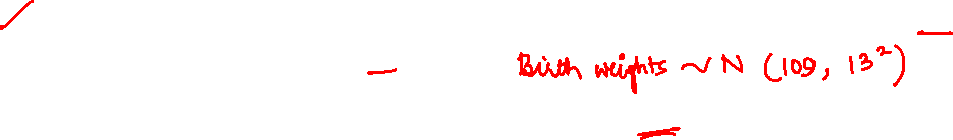 Birth weights ~ N (109, 13²)